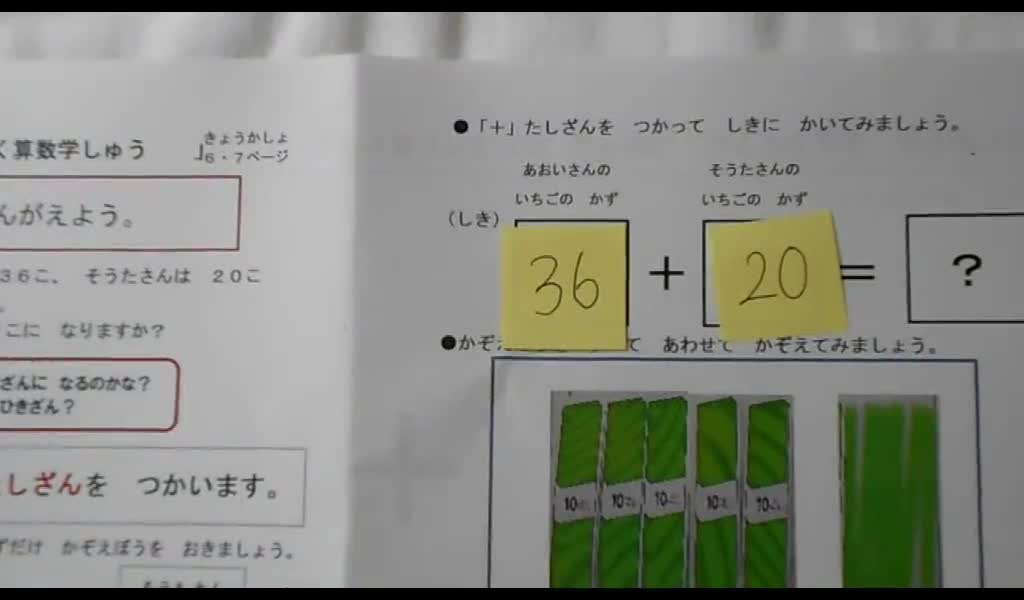 く算数学しゅう
きょうかしょ
6・7ページ
んがえよう。
36こ、 そうたさんは 20こ
こに なりますか?
ざんに なるのかな?
ひきざん?
しざんを つかいます。
ずだけ かぞえぼうを おきましょう。
●「+」たしざんを つかって しきに かいてみましょう。
あおいさんの そうたさんの
いちごの かず いちごの かず
(しき) 36 + 20 = ?
●かぞえ て あわせて かぞえてみましょう。
10 10 10 10 10